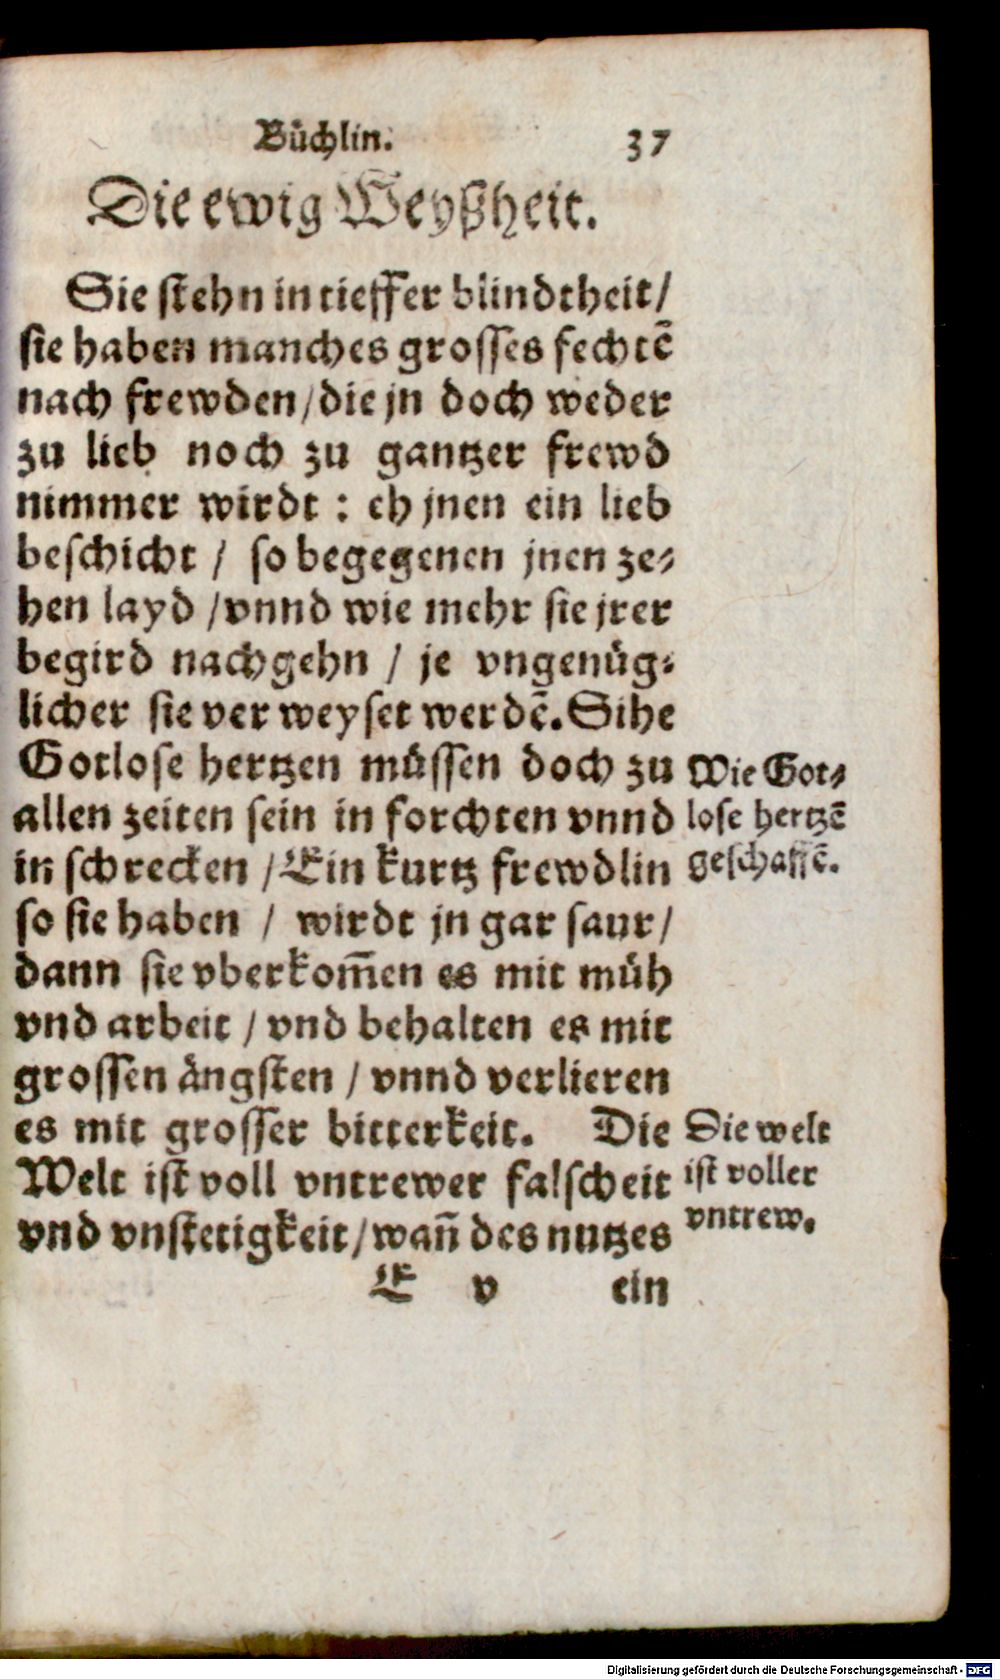 Büchlin. 37
Die ewig Weyßheit.
Sie stehn in tieffer blindtheit/
sie haben manches grosses fechtē
nach frewden/die jn doch weder
zu lieb noch zu gantzer frewd
nimmer wirdt : eh jnen ein lieb
beschicht / so begegenen jnen ze-
hen layd /vnnd wie mehr sie jrer
begird nachgehn / je vngenüg-
licher sie ver weyset werdē. Sihe
Gotlose hertzen müssen doch zu
allen zeiten sein in forchten vnnd
in schrecken /Ein kurtz frewdlin
so sie haben / wirdt jn gar saur/
dann sie vberkom̄en es mit müh
vnd arbeit / vnd behalten es mit
grossen ängsten / vnnd verlieren
es mit grosser bitterkeit. Die
Welt ist voll vntrewer falscheit
vnd vnstetigkeit/wan̄ des nutzes
E v ein
Wie Got-
lose hertzē
geschaffē.
Die welt
ist voller
vntrew.
Digitalisierung gefördert durch die Deutsche Forschungsgemeinschaft - DFG